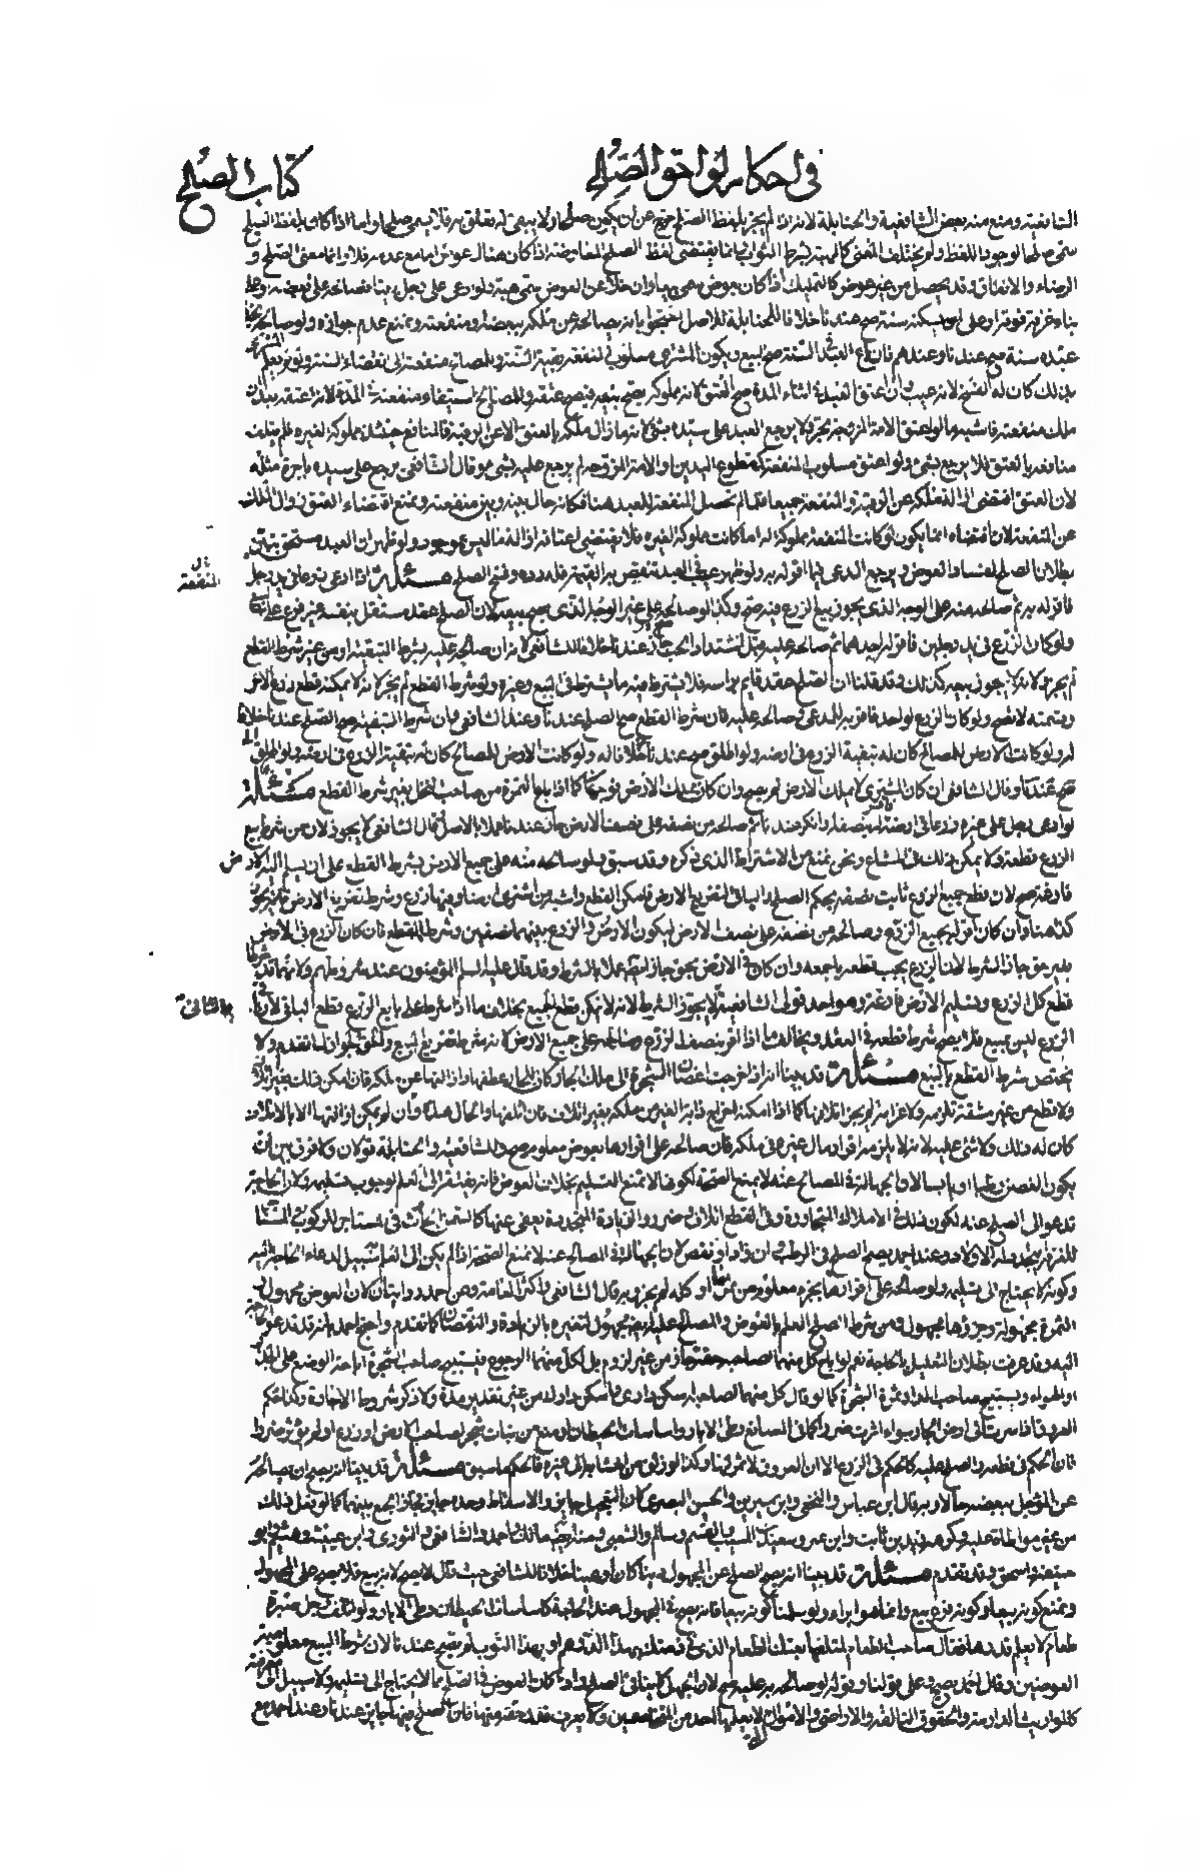 في احكام لواحق الصلح
كتاب الصلح
الشافعية ومنع منه بعض الشافعية والحنابلة لانه اذا لم يجز بلفظ الصلح خرج عن ان يكون صلحا ولا يبقى له تعلق به فلا يسمى صلحا واما اذا كان بلفظ الصلح
سمى صلحا لوجود اللفظ ولم يختلف المعنى كالهبة بشرط الثواب وانما يقتضى لفظ الصلح المعاوضة اذا كان هناك عوض اما مع عدمه فلا وانما معنى الصلح
الرضاء والاتفاق وقد يحصل من غير عوض كالتمليك اذا كان بعوض سمى بيعا وان خلا عن العوض سمى هبة ولو ادعى على رجل بيتا فصالحه على بعضه او على
بناء غرفة فوقه او على ان يسكنه سنة صح عندنا خلافا للحنابلة للاصل احتجوا بانه يصالحه عن ملكه ببعضه او منفعته ونمنع عدم جوازه ولو صالحه بخدمة
عبده سنة صح عندنا وعندهم فان باع العبد في السنة صح البيع ويكون المشترى مسلوب المنفعة بقية السنة وللمصالح منفعته الى انقضاء السنة ولو لم يعلم المشترى
بذلك كان له الفسخ لانه عيب وان اعتق العبد في اثناء المدة صح العتق لانه مملوكه يصح بيعه فيصح عتقه وللمصالح استيفاء منفعته في المدة لانه اعتقه بعد ان
ملك منفعته فاشبه ما لو اعتق الامة المزوجة بحر ولا يرجع العبد على سيده بشئ لانه ما زال ملكه بالعتق الا عن الرقبة فالمنافع حينئذ مملوكة لغيره فلم يتلف
منافعه بالعتق فلا يرجع بشئ ولو اعتق مسلوب المنفعة كمقطوع اليدين او الامة المزوجة لم يرجع عليه بشئ وقال الشافعى يرجع على سيده باجرة مثله
لان العتق اقتضى ازالة ملكه عن الرقبة والمنفعة جميعا فلما لم تحصل المنفعة للعبد هنا فكانه حال بينه وبين منفعته ونمنع اقتضاء العتق زوال الملك
عن المنفعة لان اقتضاه انما يكون لو كانت المنفعة مملوكة له اما اذا كانت مملوكة لغيره فلا يقتضى اعتاقه ازالة ما ليس بموجود ولو ظهر ان العبد مستحق تبين
بطلان الصلح لفساد العوض ويرجع المدعى فيما اقر له به ولو ظهر عيب في العبد تنقص به القيمة فله رده وفسخ الصلح مسئلة اذا ادعى زرعا في يد رجل
فاقر له به ثم صالحه منه على الوجه الذى يجوز بيع الزرع فيه صح وكذا لو صالحه على غير الوجه الذى يصح بيعه لان الصلح عقد مستقل بنفسه غير فرع على غيره
ولو كان الزرع في يد رجلين فاقر له احدهما ثم صالحه عليه قبل اشتداد الحب جاز عندنا خلافا للشافعى لانه ان صالحه عليه بشرط التبقية او من غير شرط القطع
لم يجز لانه لا يجوز بيعه كذلك وقد قلنا ان الصلح عقد قائم براسه فلا يشترط فيه ما يشترط في البيع وغيره ولو شرط القطع لم يجز لانه لا يمكنه قطع زرع الاخر
وقسمته لا تصح ولو كان الزرع لواحد فاقر به للمدعى وصالحه عليه فان شرط القطع صح الصلح عندنا وعند الشافعى وان شرط التبقية صح الصلح عندنا خلافا
له ولو كانت الارض للمصالح كان له تبقية الزرع في ارضه ولو اطلق صح عندنا خلافا له ولو كانت الارض للمصالح كان له تبقية الزرع في ارضه ولو اطلق
صح عندنا وقال الشافعى ان كان المشترى لا يملك الارض لم يصح وان كان يملك الارض فوجهان كما اذا باع الثمرة من صاحب النخل بغير شرط القطع مسئلة
لو ادعى رجل على غيره زرعا في ارضه فاقر له بنصفه او انكر عندنا ثم صالحه من نصفه على نصف الارض جاز عندنا عملا بالاصل وقال الشافعى لا يجوز لان من شرط بيع
الزرع قطعه ولا يمكن ذلك في المشاع ونحن نمنع من الاشتراط الذى ذكره وقد سبق ولو صالحه منه على جميع الارض بشرط القطع على ان يسلم اليه الارض
فارغة صح لان قطع جميع الزرع ثابت نصفه بحكم الصلح والباقي لتفريغ الارض فامكن القطع واشبه من اشترى ارضا وفيها زرع وشرط تفريغ الارض فانه يجوز
كذا هنا وان كان اقر له بجميع الزرع وصالحه من نصفه على نصف الارض ليكون الارض والزرع بينهما نصفين وشرط القطع فان كان الزرع في الارض
بغير حق جاز الشرط لان الزرع يجب قطعه باجمعه وان كان في الارض بحق جاز ايضا عملا بالشرط وقد قال عليه السلم المؤمنون عند شروطهم ولانهما قد شرطا
قطع كل الزرع وتسليم الارض فارغة وهو احد قولى الشافعية والثانى لا يجوز الشرط لانه لا يمكن قطع الجميع بخلاف ما اذا شرط على بايع الزرع قطع الباقى لان باقى
الزرع ليس بمبيع فلا يصح شرط قطعه في العقد ويخالف ما اذا اقر بنصف الزرع وصالحه على جميع الارض لانه شرط تفريغ المبيع والحق الجواز لما تقدم ولا
يختص شرط القطع بالمبيع مسئلة قد بينا انه اذا خرجت اغصان الشجرة الى ملك الجار كان للجار عطفها او ازالتها عن ملكه فان امكن ذلك بغير اتلاف
ولا قطع من غير مشقة تلزمه ولا غرامة لم يجز اتلافها كما اذا امكنه اخراج دابة الغير من ملكه بغير اتلاف فان اتلفها والحال هذه ضمن وان لم يمكن ازالتها الا بالاتلاف
كان له ذلك ولا شئ عليه لانه لا يلزمه اقرار مال غيره في ملكه فان صالحه على اقرارها بعوض معلوم صح وللشافعية والحنابلة قولان ولا فرق بين ان
يكون الغصن رطبا او يابسا لان الجهالة في المصالح عنه لا يمنع الصحة لكونها لا تمنع التسليم بخلاف العوض فانه يفتقر الى العلم لوجوب تسليمه ولان الحاجة
تدعو الى الصلح عنه لكون ذلك في الاملاك المتجاورة وفي القطع اتلاف وضرر والزيادة المتجددة يعفى عنها كالسمن الحادث في المستاجر للركوب والمستاجر
للغرفة يتجدد له الاولاد وعند احمد يصح الصلح في الرطب وان زاد او نقص لان الجهالة في المصالح عنه لا تمنع الصحة اذا لم يكن الى العلم سبيل لدعاء الحاجة اليه
وكونه لا يحتاج الى تسليمه ولو صالحه على اقرارها بجزء معلوم من ثمرها او كله لم يجز وبه قال الشافعى واكثر العامة وعن احمد روايتان لان العوض مجهول اذ
الثمرة مجهولة وجزؤها مجهول ومن شرط الصلح العلم بالعوض والمصالح عليه ايضا مجهول لتغيره بالزيادة والنقصان كما تقدم واحتج احمد بانه قد تدعو الحاجة
اليه وقد عرفت بطلان التعليل بالحاجة نعم لو اباح كل منهما لصاحبه حقه جاز من غير لزوم بل لكل منهما الرجوع فيستبيح صاحب الشجرة اباحة الوضع على الجدار
او الهواء ويستبيح صاحب الدار ثمرة الشجرة كما لو قال كل منهما لصاحبه اسكن دارى واسكن دارك من غير تقدير مدة ولا ذكر شروط الاجارة وكذا حكم
العروق اذا سرت الى ارض الجار سواء اثرت ضررا كما في المصانع وطى الابار واساسات الحيطان او منع من نبات شجر لصاحب الارض او زرع او لم يؤثر ضررا
فان الحكم في قطعه والصلح عليه كالحكم في الزرع الا ان العروق لا ثمر لها وكذا لو زلق من اخشابه الى غيره فالحكم ما سبق مسئلة قد بينا انه يصح ان يصالحه
عن المؤجل ببعضه حالا وبه قال ابن عباس والنخعى وابن سيرين والحسن البصرى لان التعجيل جايز والاسقاط وحده جايز فجاز الجمع بينهما كما لو فعل ذلك
من غير مواطاة عليه وكرهه زيد بن ثابت وابن عمر وسعيد بن المسيب والقسم وسالم والشعبى ومنع منه ايضا مالك واحمد والشافعى والثورى وابن عيينة وهشيم وابو
حنيفة واسحق وقد تقدم مسئلة قد بينا انه يصح الصلح عن المجهول دينا كان او عينا خلافا للشافعى حيث قال لا يصح لانه بيع فلا يصح على المجهول
ونمنع كونه بيعا وكونه فرع بيع وانما هو ابراء ولو سلمنا كونه بيعا فانه يصح في المجهول عند الحاجة كاساسات الحيطان وطى الابار ولو اتلف رجل صبرة
طعام لا يعلم قدرها فقال صاحب الطعام لمتلفها بعتك الطعام الذى في ذمتك بهذا الدرهم او بهذا الثوب لم يصح عندنا لان شرط البيع معلومية
العوضين وقال احمد يصح وعلى قولنا وقوله لو صالحه به عليه صح لان الجهل لا ينافى الصلح واذا كان العوض في الصلح مما لا يحتاج الى تسليمه ولا سبيل الى معرفته
كالمواريث الدارسة والحقوق السالفة والاراضى والاموال لا يعلمها احد من المتخاصمين ولا يعرف قدر حقه منها فان الصلح فيها جايز عندنا وعند احمد مع